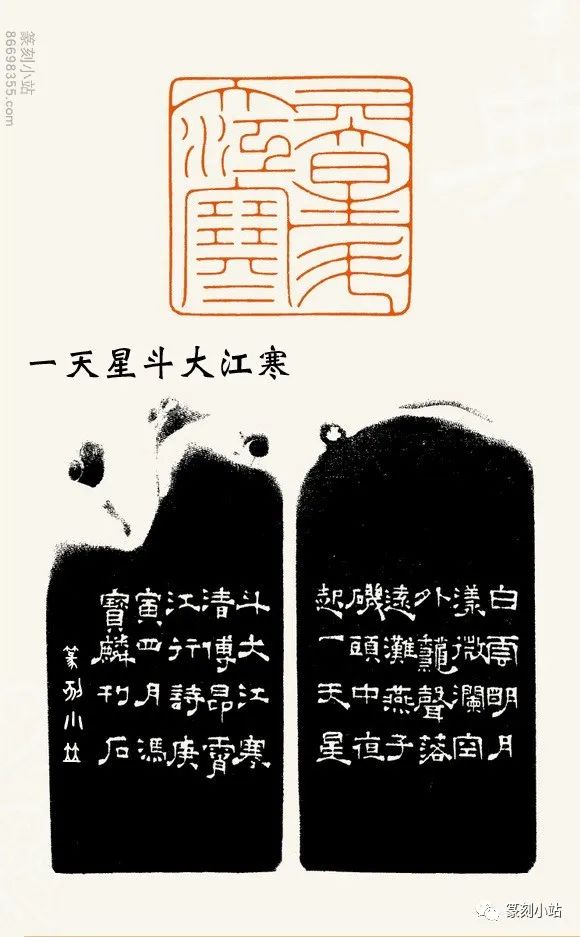 篆刻小站
86698355.com
一天星斗大江寒
一天星斗大江寒
白雲明月
漾微瀾空
外鼉聲落
遠灘燕子
磯頭中夜
起一天星
斗大江寒
清傅昂霄
江行詩庚
寅四月馮
寶麟刊石
篆刻小站
篆刻小站